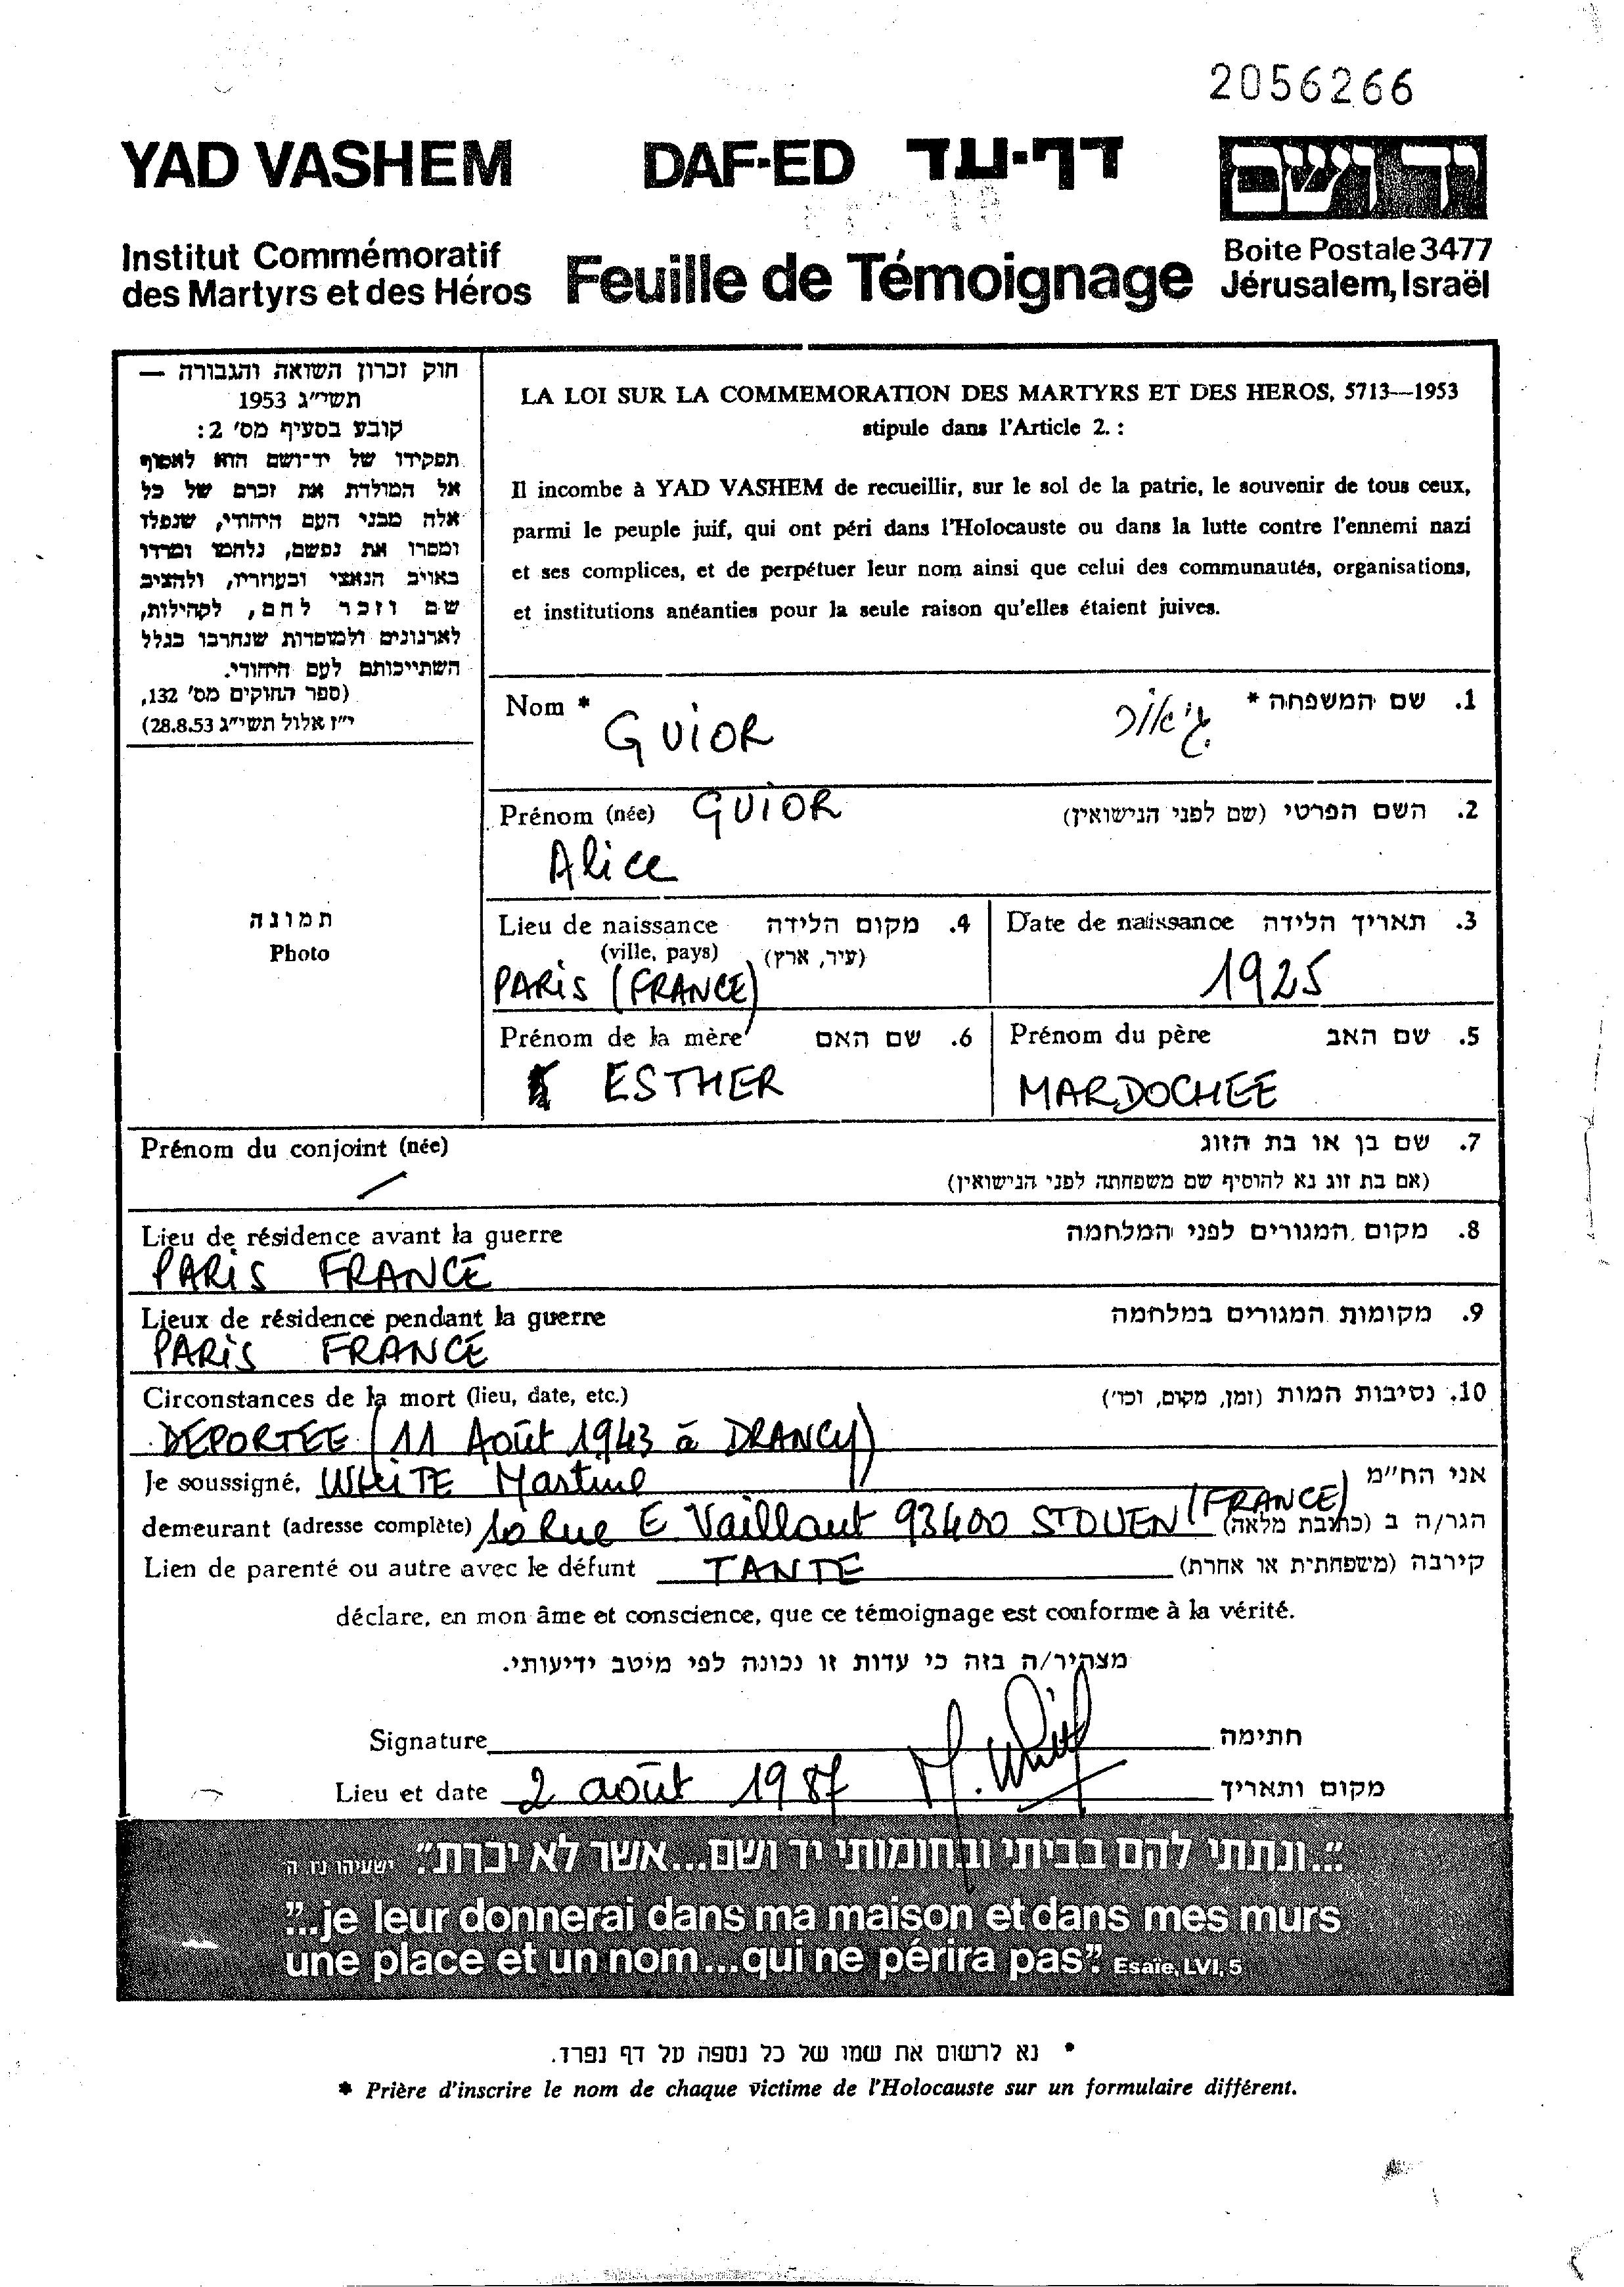 2056266
YAD VASHEM DAF-ED דף-עד ידושם
Institut Commémoratif
des Martyrs et des Héros
Feuille de Témoignage
Boite Postale 3477
Jérusalem, Israël
חוק זכרון השואה והגבורה —
תשי״ג 1953
קובע בסעיף מס׳ 2:
תפקידו של יד-ושם הוא לאסוף
אל המולדת את זכרם של כל
אלה מבני העם היהודי, שנפלו
ומסרו את נפשם, נלחמו ומרדו
באויב הנאצי ובעוזריו, ולהציב
שם וזכר להם, לקהילות,
לארגונים ולמוסדות שנחרבו בגלל
השתייכותם לעם היהודי.
(ספר החוקים מס׳ 132,
י״ז אלול תשי״ג 28.8.53)
LA LOI SUR LA COMMEMORATION DES MARTYRS ET DES HEROS, 5713—1953
stipule dans l'Article 2. :
Il incombe à YAD VASHEM de recueillir, sur le sol de la patrie, le souvenir de tous ceux,
parmi le peuple juif, qui ont péri dans l'Holocauste ou dans la lutte contre l'ennemi nazi
et ses complices, et de perpétuer leur nom ainsi que celui des communautés, organisations,
et institutions anéanties pour la seule raison qu'elles étaient juives.
תמונה
Photo
Nom * GUIOR גיאור 1. שם המשפחה *
Prénom (née) GUIOR 2. השם הפרטי (שם לפני הנישואין)
Alice
Lieu de naissance 4. מקום הלידה
(ville, pays) (עיר, ארץ)
PARIS (FRANCE)
Date de naissance 3. תאריך הלידה
1925
Prénom de la mère 6. שם האם
ESTHER
Prénom du père 5. שם האב
MARDOCHEE
Prénom du conjoint (née) 7. שם בן או בת הזוג
(אם בת זוג נא להוסיף שם משפחתה לפני הנישואין)
Lieu de résidence avant la guerre 8. מקום המגורים לפני המלחמה
PARIS FRANCE
Lieux de résidence pendant la guerre 9. מקומות המגורים במלחמה
PARIS FRANCE
Circonstances de la mort (lieu, date, etc.) 10. נסיבות המות (זמן, מקום, וכו׳)
DEPORTEE (11 Août 1943 à DRANCY)
Je soussigné, WHITE Martine אני הח״מ
demeurant (adresse complète) 10 Rue E. Vaillant 93400 ST OUEN (FRANCE) הגר/ה ב (כתובת מלאה)
Lien de parenté ou autre avec le défunt TANTE קירבה (משפחתית או אחרת)
déclare, en mon âme et conscience, que ce témoignage est conforme à la vérité.
מצהיר/ה בזה כי עדות זו נכונה לפי מיטב ידיעותי.
Signature M. White חתימה
Lieu et date 2 août 1987 מקום ותאריך
״...ונתתי להם בביתי ובחומותי יד ושם...אשר לא יכרת״. ישעיהו נו ה
"...je leur donnerai dans ma maison et dans mes murs
une place et un nom...qui ne périra pas". Esaïe, LVI, 5
* נא לרשום את שמו של כל נספה על דף נפרד.
* Prière d'inscrire le nom de chaque victime de l'Holocauste sur un formulaire différent.